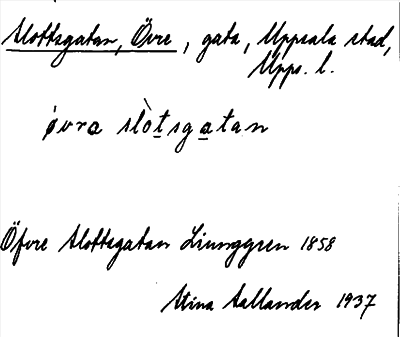 Slottsgatan, Övre, gata, Uppsala stad,
Upps. l.
øvra slòtsgatan
Öfvre Slottsgatan Ljunggren 1858
Stina Sallander 1937